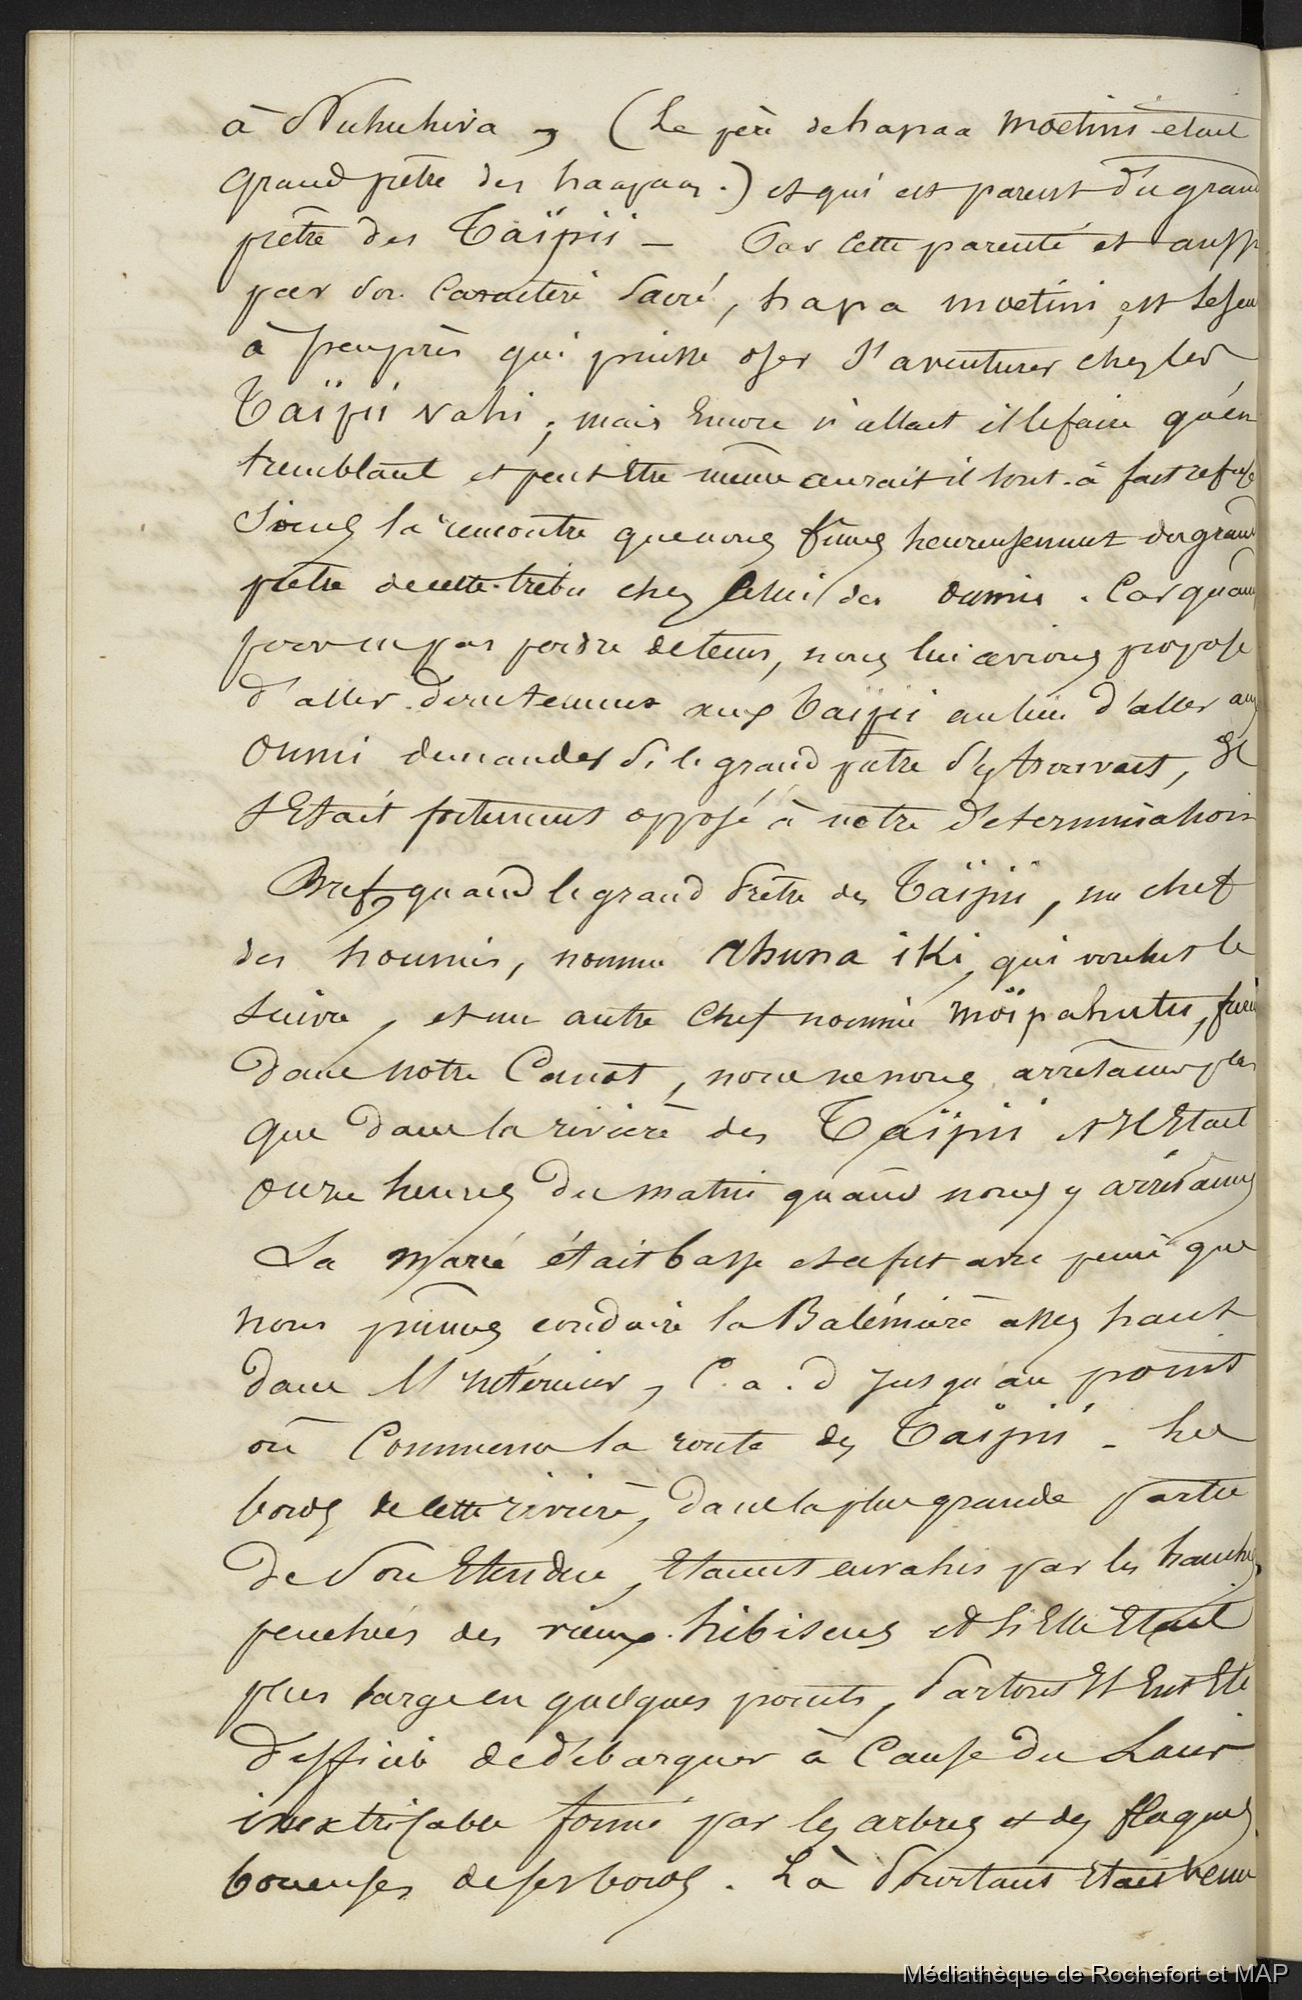 à Nuhuhiva, (Le père de hapaa moetini etait
grand prêtre des haapaas.) et qui est parent du grand
prêtre des Taïpii – Par cette parenté et aussi
par son Caractère Sacré, hapa moetini, est le seul
à peu près qui puisse oser s'aventurer chez les
Taïpii vahi; mais encore n'allait il le faire qu'en
tremblant et peut Etre même aurait il tout-à fait refusé
sans la rencontre que nous fimes heureusement du grand
prêtre de cette tribu chez celui des oumis. Car quand
pour ne pas perdre de tems, nous lui avions proposé
d'aller directement aux Taïpii au lieu d'aller aux
Oumi demander si le grand prêtre s'y trouvait, Il
s'Etait fortement opposé à notre determination
Bref, quand le grand Prêtre des Taïpii, un chef
des houmis, nommé Ahuna iki, qui voulut le
suivre, et un autre Chef nommé moïpahutu, furent
dans notre Canot, nous ne nous arretames plus
que dans la rivière des Taïpii et Il Etait
onze heures du matin quand nous y arrivames
La marée était basse et ce fut avec peine que
nous pûmes conduire la Baleinière assez haut
dans l'Interieur, C.a.d jusqu'au point
où Commence la route des Taïpii - Les
bords de cette rivière, dans la plus grande partie
de son Etendue, Etaient envahis par les branches
penchées des vieux hibiscus et si Elle Etait
plus large en quelques points, Partout Il Eut Eté
difficile de débarquer à Cause du Lacis
inextricable formé par les arbres et des flaques
boueuses de ses bords. Là Pourtant Etait venu
Médiathèque de Rochefort et MAP